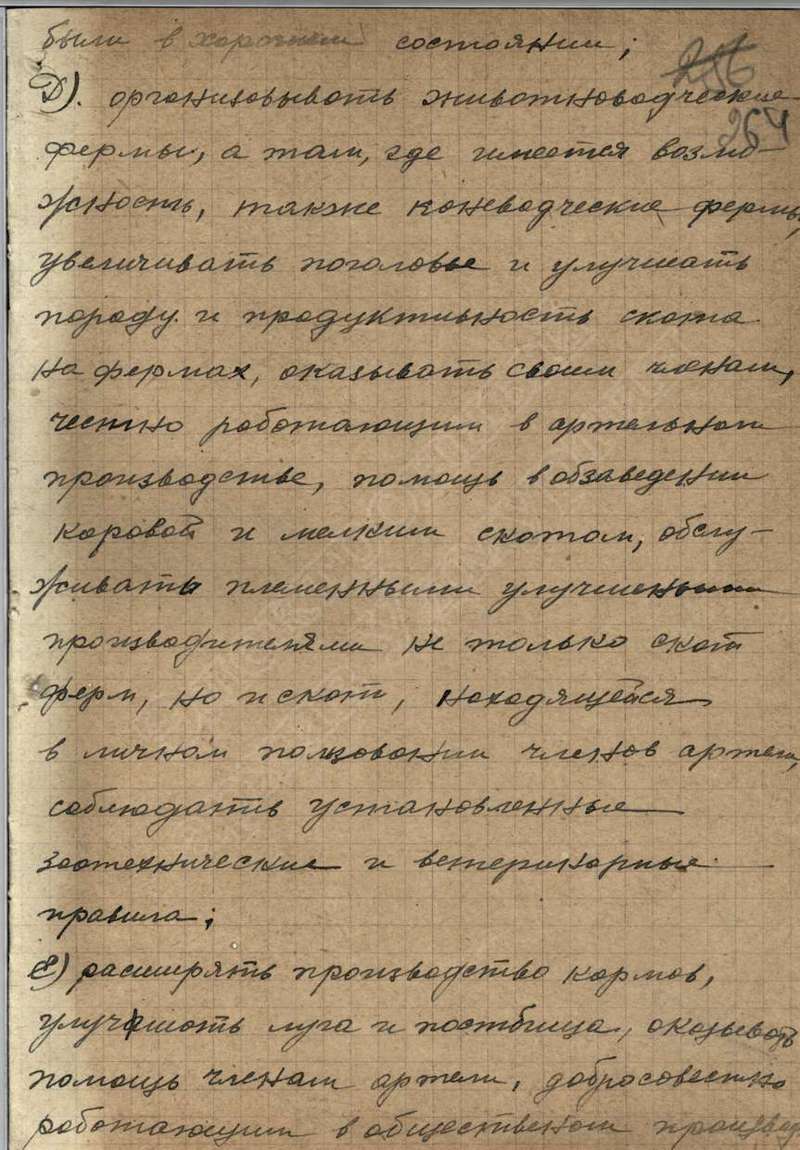 были в хорошем состоянии;
256
Д). организовывать животноводческие
264
фермы, а там, где имеется возмо-
жность, также коневодческие фермы,
увеличивать поголовье и улучшать
породу и продуктивность скота
на фермах, оказывать своим членам,
честно работающим в артельном
производстве, помощь в обзаведении
коровой и мелким скотом, обслу-
живать племенными улучшенными
производителями не только скот
ферм, но и скот, находящейся
в личном пользовании членов артели,
соблюдать установленные
зоотехнические и ветеринарные
правила;
Е) расширять производство кормов,
улучшать луга и пастбища, оказывать
помощь членам артели, добросовестно
работающим в общественном производ